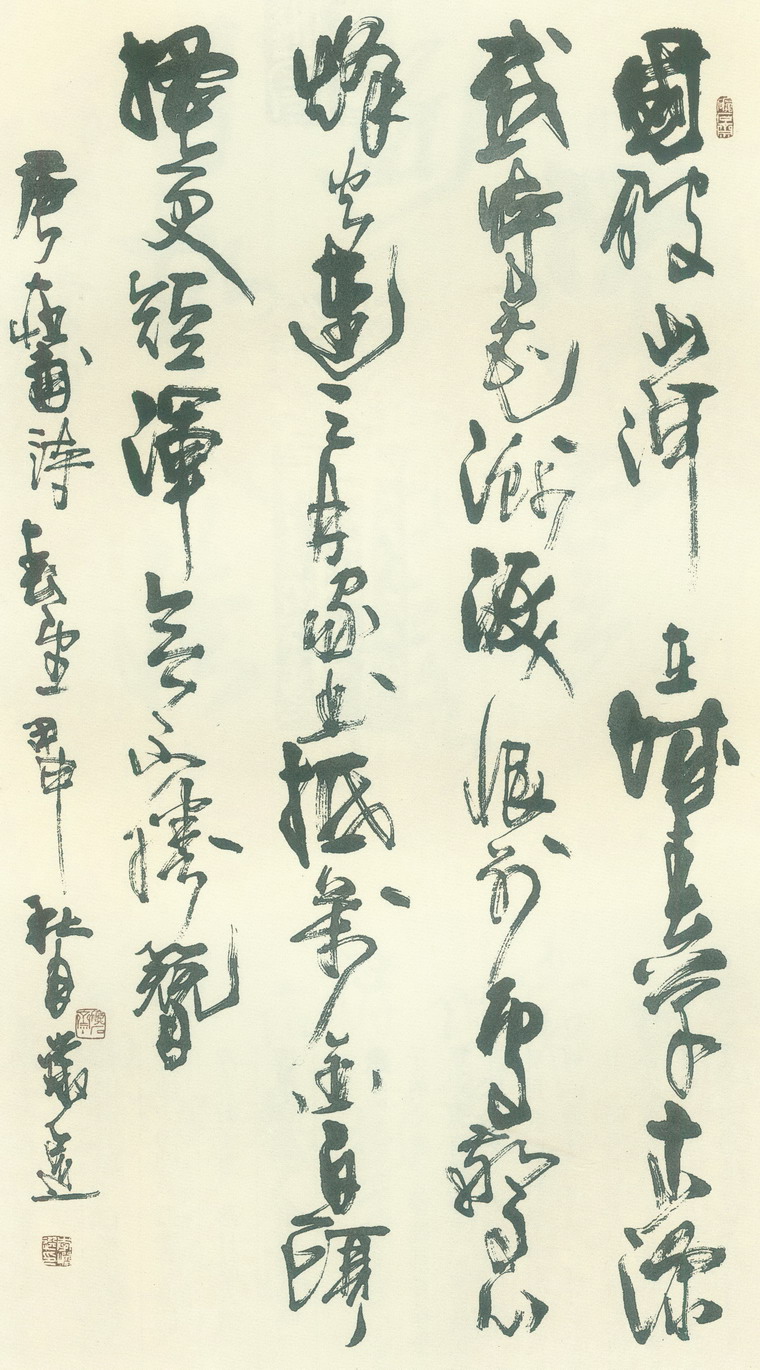 國破山河在城春草木深
感時花濺淚恨別鳥驚心
烽火連三月家書抵萬金白頭
搔更短渾欲不勝簪
唐杜甫詩春望甲申秋月